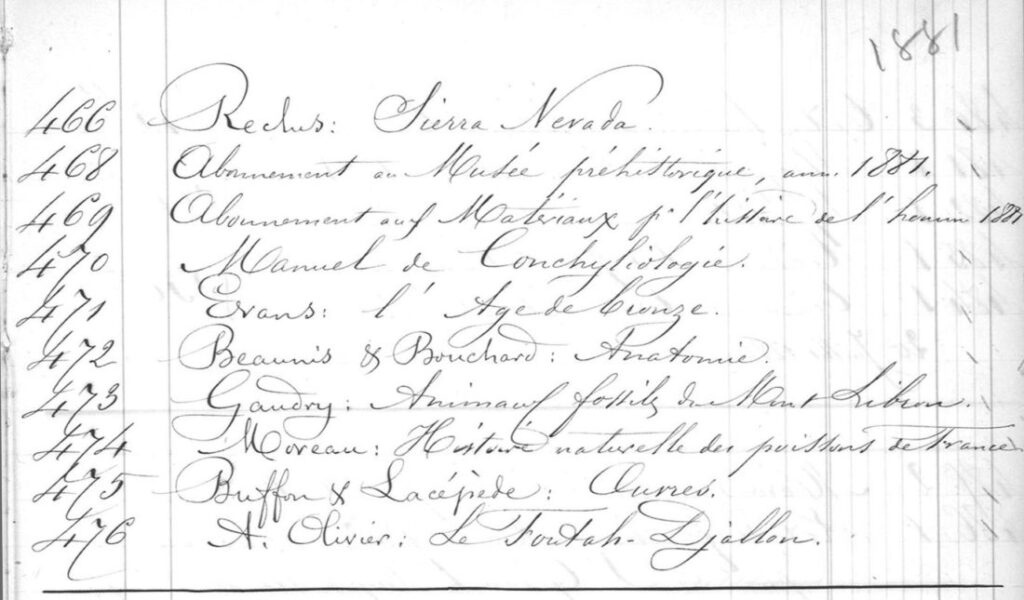 1881
466 Reclus: Sierra Nevada.
468 Abonnement au Musée préhistorique, ann. 1881.
469 Abonnement aux Matériaux pr l'histoire de l'homme 1881
470 Manuel de Conchyliologie.
471 Evans: l'Age de bronze.
472 Beaunis & Bouchard: Anatomie.
473 Gaudry: Animaux fossiles du Mont Liban.
474 Moreau: Histoire naturelle des poissons de France
475 Buffon & Lacépède: Œuvres.
476 A. Olivier: Le Foutah-Djallon.